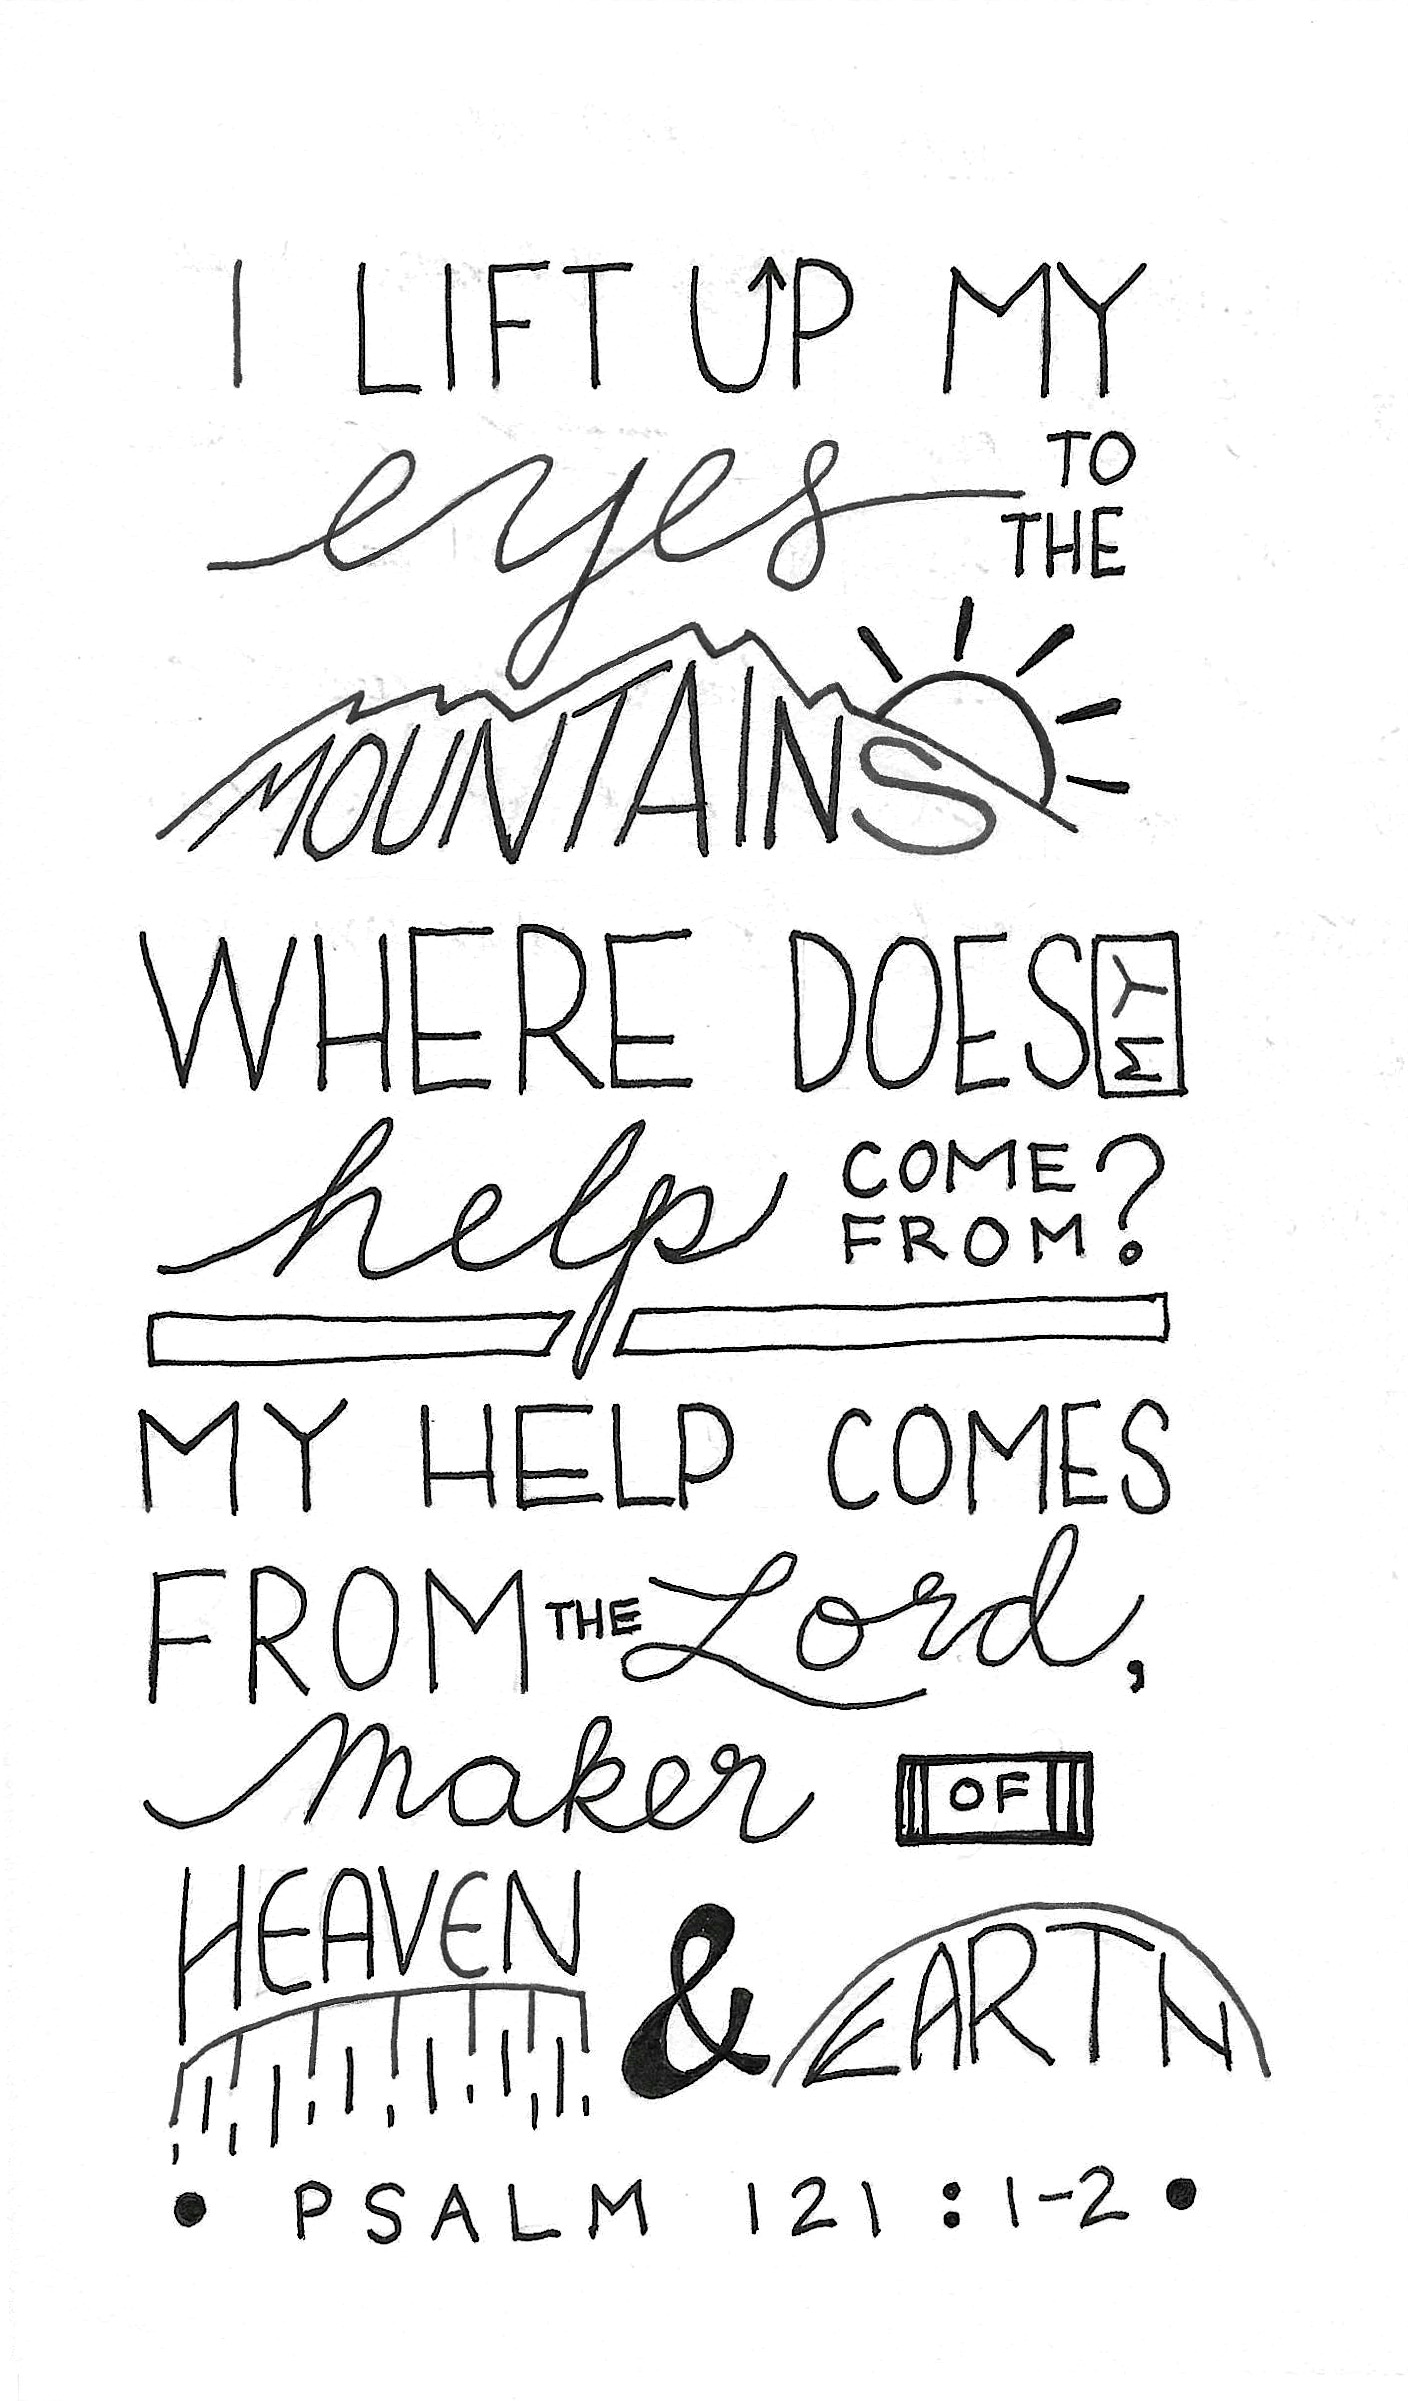 I LIFT UP MY
eyes TO THE
MOUNTAINS
WHERE DOES MY
help COME FROM?
MY HELP COMES
FROM THE Lord,
maker OF
HEAVEN & EARTH
• PSALM 121:1-2 •